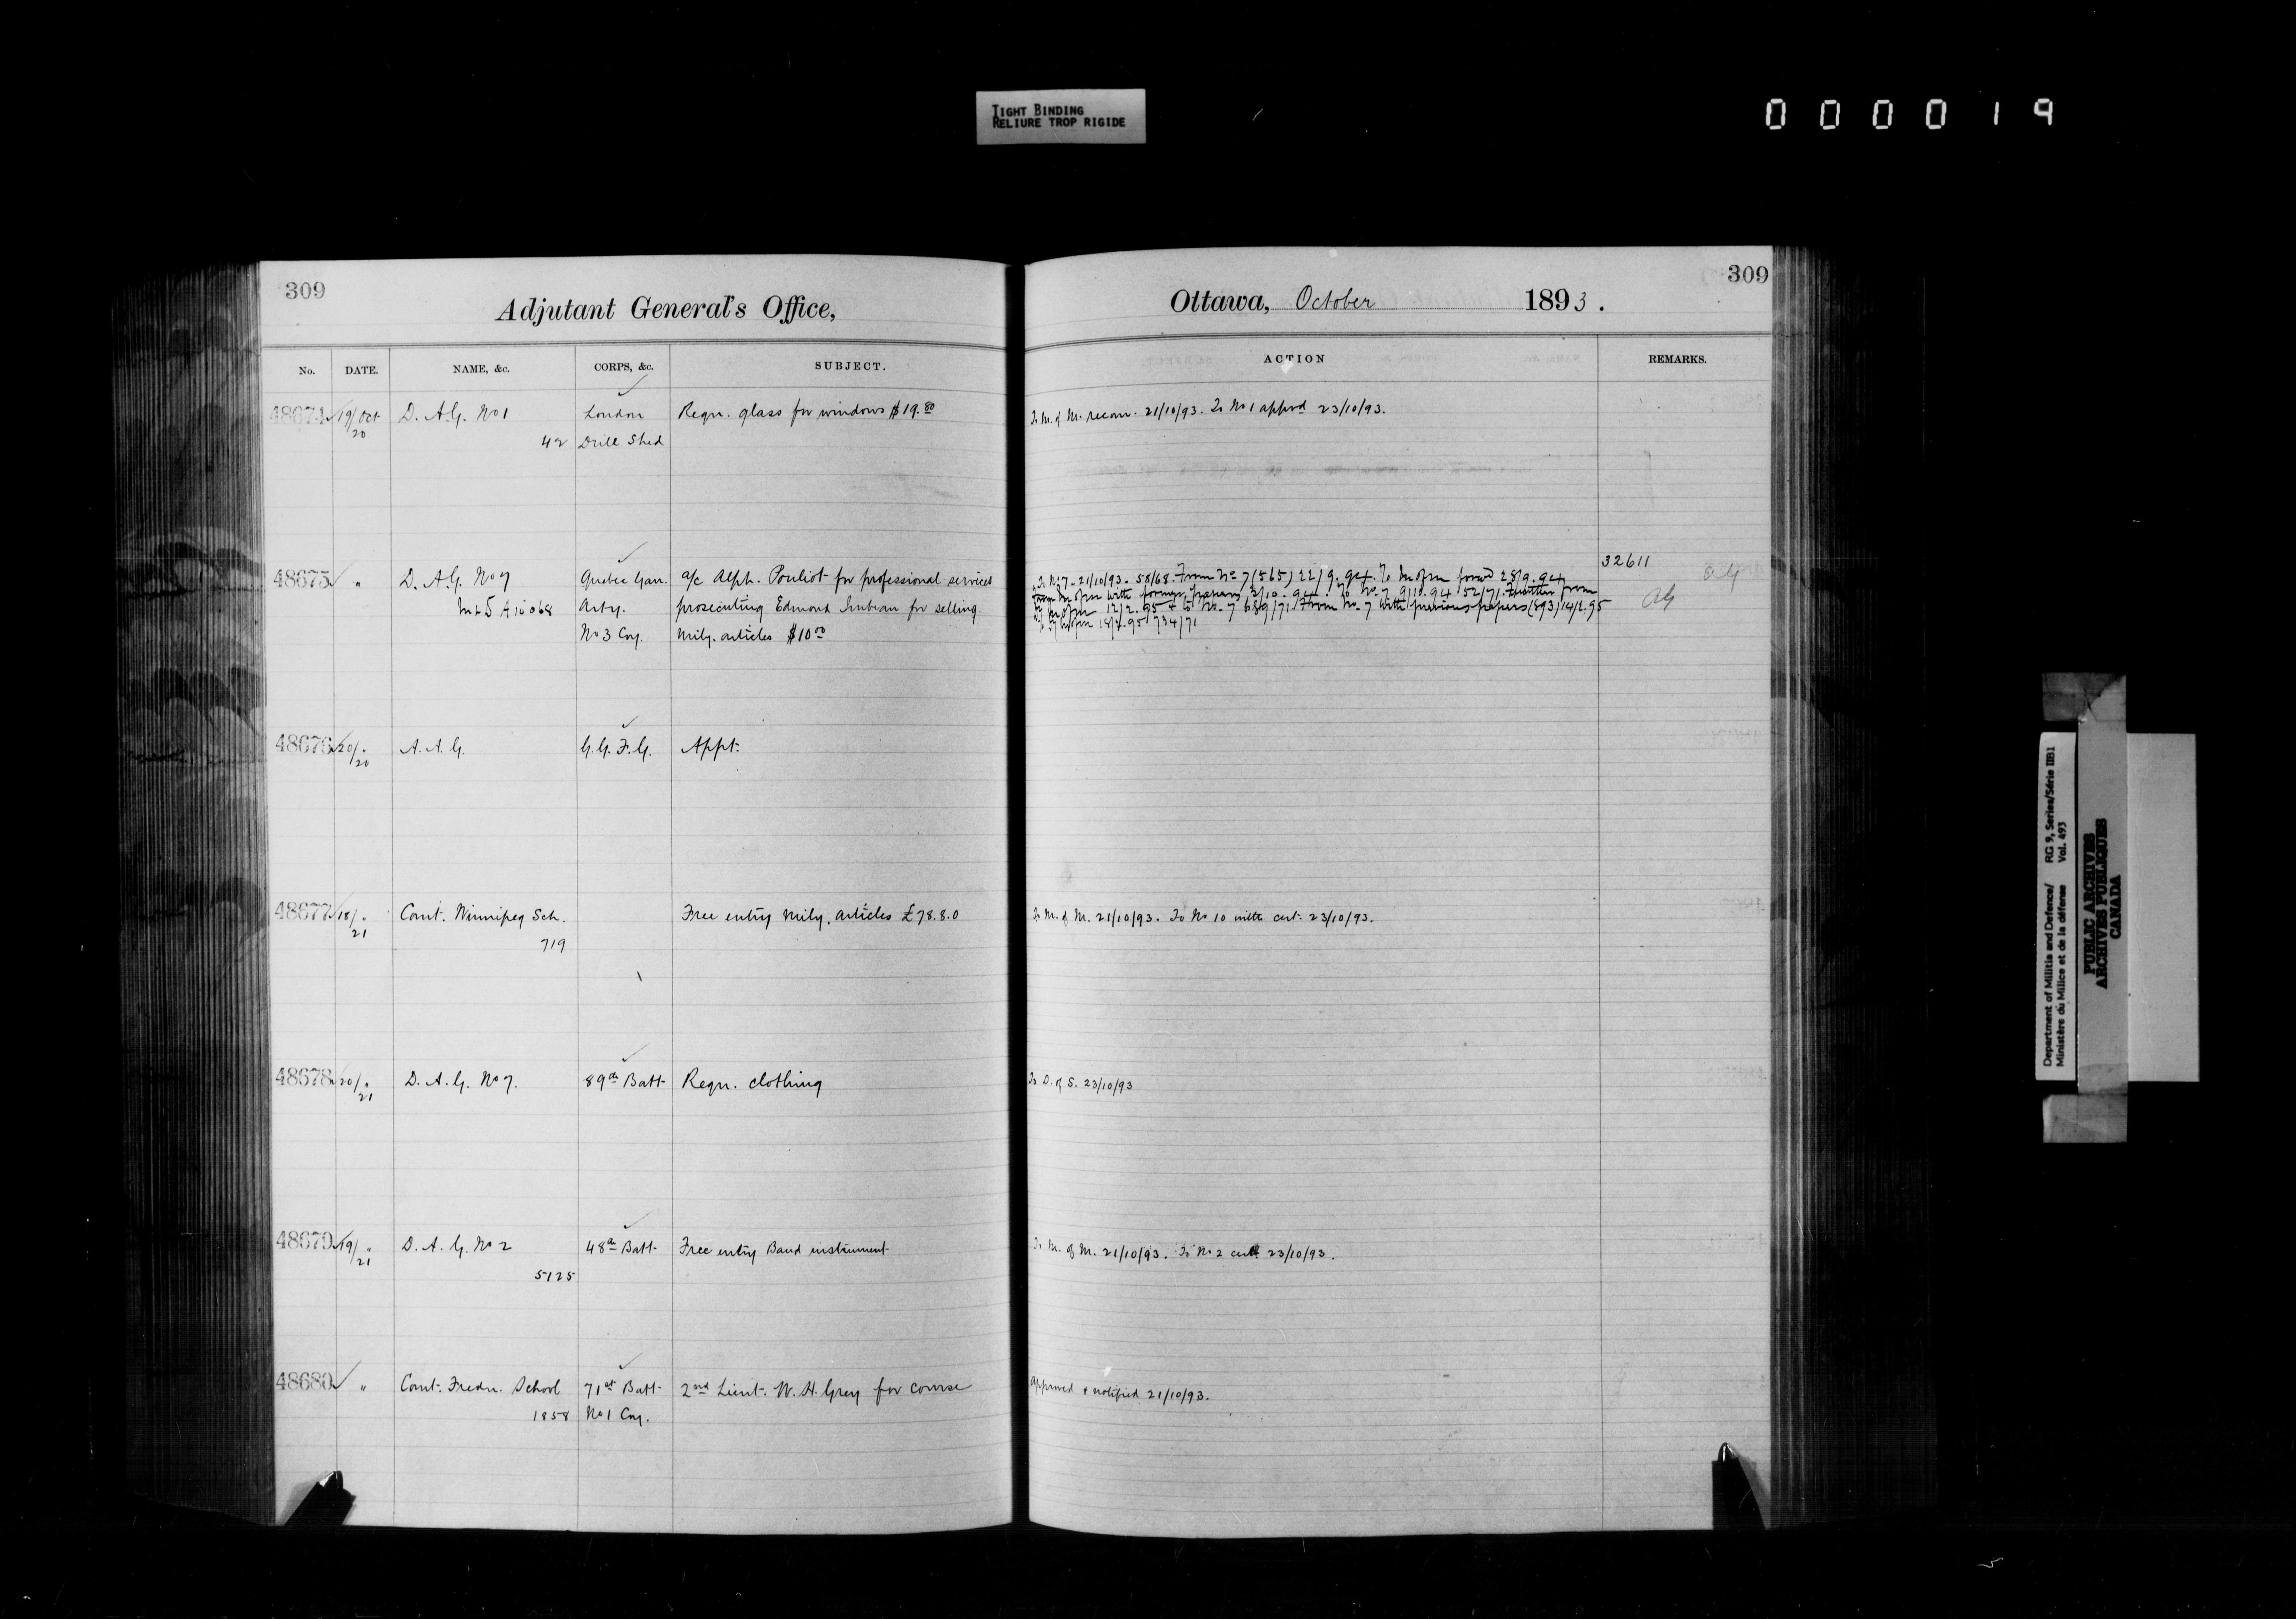 TIGHT BINDING
RELIURE TROP RIGIDE
000019
309
Adjutant General's Office,
No. DATE. NAME, &c. CORPS, &c. SUBJECT.
48674 19/Oct D. A.G. No 1 London Regn. glass for windows $19.80
20 42 Drill Shed
48675 " D. A.G. No 7 Quebec Garr. a/c Alph. Pouliot for professional services
A10068 Arty. prosecuting Edmond for selling
No 3 Coy. Mily. articles $10.00
48676 20/" A. A. G. G. G. F. G. Appt.
20
48677 18/" Comt. Winnipeg Sch. Free entry Mily. articles £78.8.0
21 719
48678 20/" D. A. G. No 7. 89th Batt. Regn. clothing
21
48679 19/" D. A. G. No 2 48th Batt. Free entry Band instrument
21 5125
48680 " Comt. Fredn. School 71st Batt. 2nd Lieut. W. H. Grey for course
1858 No 1 Coy.
309
Ottawa, October 1893.
ACTION REMARKS.
To M. of M. recom. 21/10/93. To No 1 apprvd 23/10/93.
32611
To No 7 - 21/10/93 - 58/68. From No 7 (565) 22/9.94. To forwd 28/9.94
From with former papers 2/10.94. To No. 7 9/10.94 52/71. Further from
12/2.95 + to No. 7 689/71. From No. 7 with previous papers (893) 14/2.95
18/2.95 734/71
AG
To M. of M. 21/10/93. To No 10 with cert. 23/10/93.
To D. of S. 23/10/93
To M. of M. 21/10/93. To No 2 cert 23/10/93.
Approved + notified 21/10/93.
Department of Militia and Defence/ RG 9, Series/Série IIB1
Ministère du Milice et de la défense Vol. 493
PUBLIC ARCHIVES
ARCHIVES PUBLIQUES
CANADA